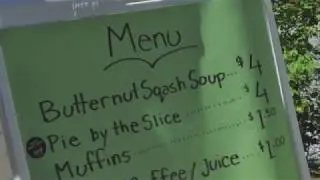 Menu
Butternut Sqash Soup... $4
Pie by the Slice ............ $4
Muffins .................. $1.50
/Juice.... $1.00